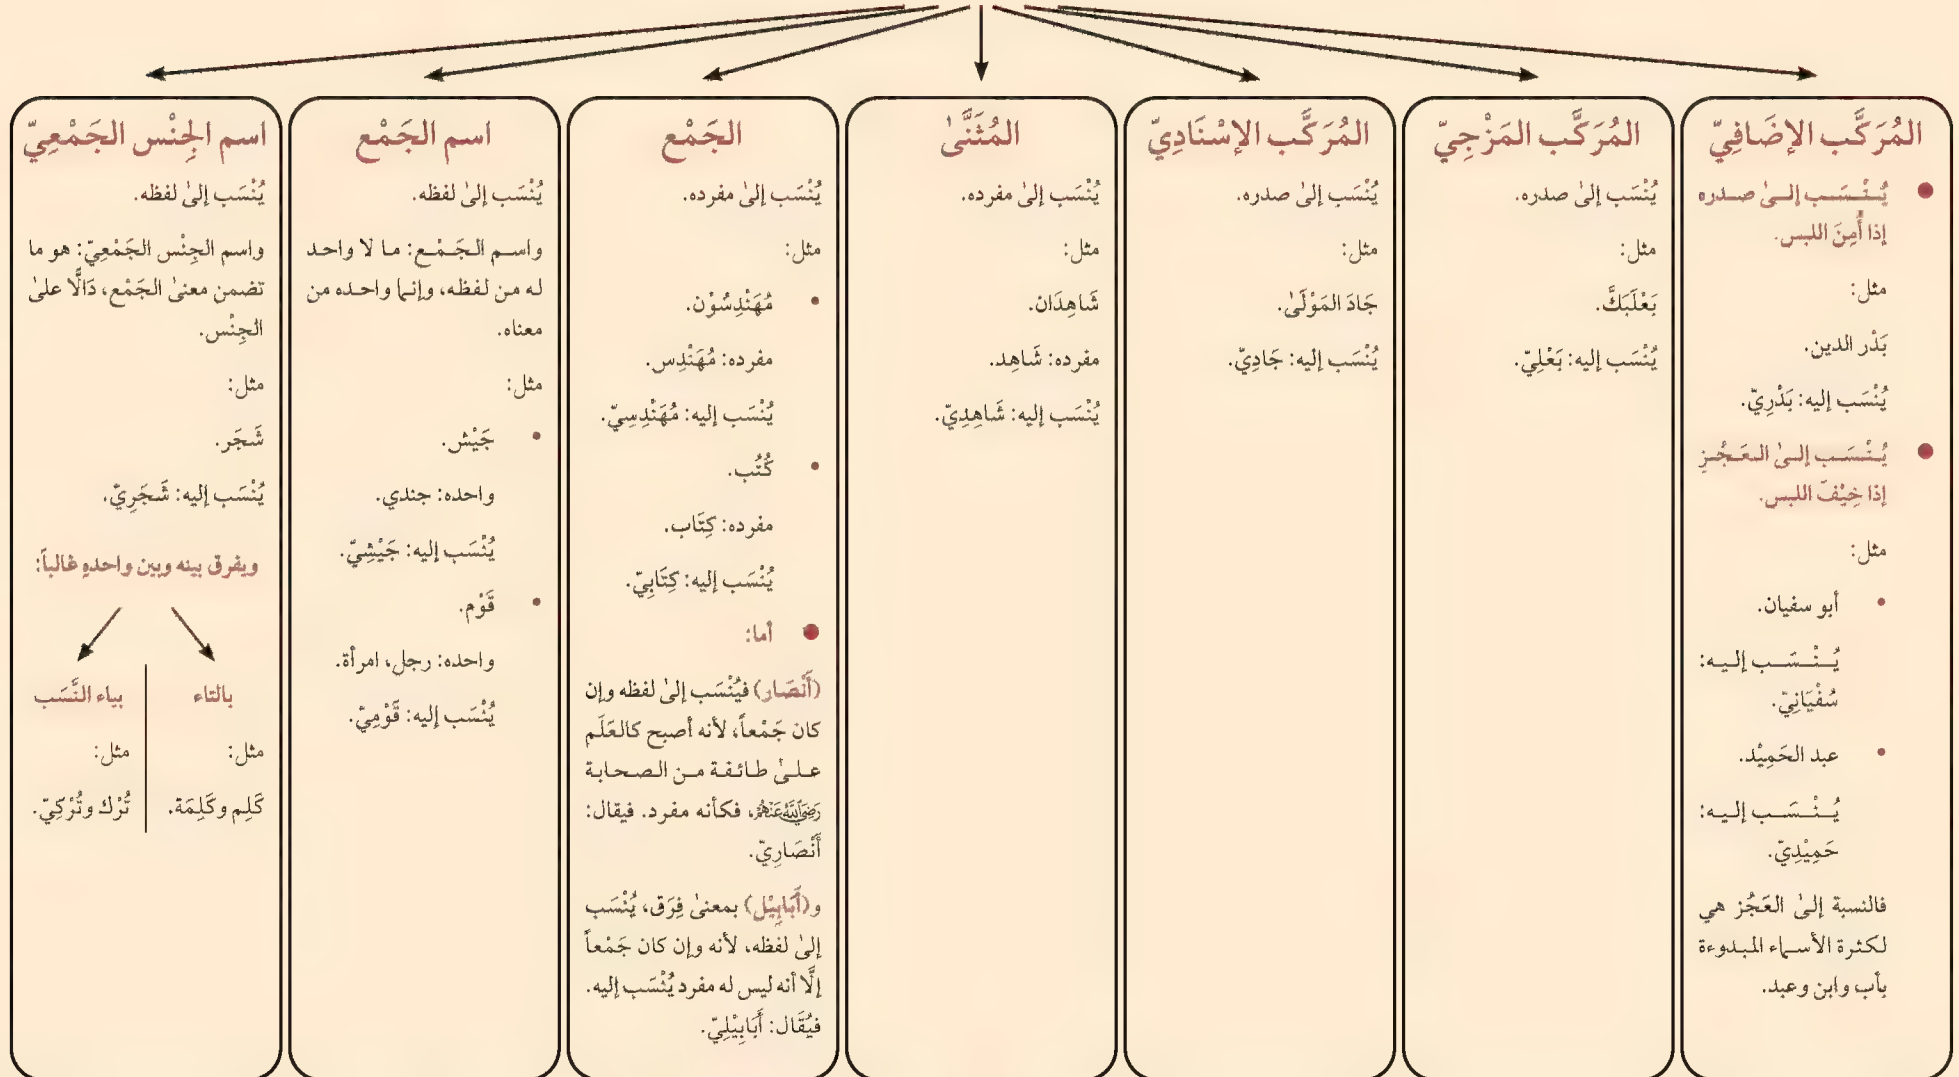 المُرَكَّب الإضَافِيّ
يُنْسَب إلىٰ صدره
إذا أُمِنَ اللبس.
مثل:
بَدْر الدين.
يُنْسَب إليه: بَدْرِيّ.
يُنْسَب إلىٰ العَجُزِ
إذا خِيْفَ اللبس.
مثل:
أبو سفيان.
يُنْسَب إليه:
سُفْيَانِيّ.
عبد الحَمِيْد.
يُنْسَب إليه:
حَمِيْدِيّ.
فالنسبة إلىٰ العَجُز هي
لكثرة الأسماء المبدوءة
بأب وابن وعبد.
المُرَكَّب المَزْجِيّ
يُنْسَب إلىٰ صدره.
مثل:
بَعْلَبَكَّ.
يُنْسَب إليه: بَعْلِيّ.
المُرَكَّب الإسْنَادِيّ
يُنْسَب إلىٰ صدره.
مثل:
جَادَ المَوْلَىٰ.
يُنْسَب إليه: جَادِيّ.
المُثَنَّىٰ
يُنْسَب إلىٰ مفرده.
مثل:
شَاهِدَان.
مفرده: شَاهِد.
يُنْسَب إليه: شَاهِدِيّ.
الجَمْع
يُنْسَب إلىٰ مفرده.
مثل:
مُهَنْدِسُوْن.
مفرده: مُهَنْدِس.
يُنْسَب إليه: مُهَنْدِسِيّ.
كُتُب.
مفرده: كِتَاب.
يُنْسَب إليه: كِتَابِيّ.
أما:
(أَنْصَار) فيُنْسَب إلىٰ لفظه وإن
كان جَمْعاً، لأنه أصبح كالعَلَم
علىٰ طائفة من الصحابة
رَضِيَ اللَّهُ عَنْهُمْ، فكأنه مفرد. فيقال:
أَنْصَارِيّ.
و(أَبَابِيْل) بمعنىٰ فِرَق، يُنْسَب
إلىٰ لفظه، لأنه وإن كان جَمْعاً
إلَّا أنه ليس له مفرد يُنْسَب إليه.
فيُقَال: أَبَابِيْلِيّ.
اسم الجَمْع
يُنْسَب إلىٰ لفظه.
واسم الجَمْع: ما لا واحد
له من لفظه، وإنما واحده من
معناه.
مثل:
جَيْش.
واحده: جندي.
يُنْسَب إليه: جَيْشِيّ.
قَوْم.
واحده: رجل، امرأة.
يُنْسَب إليه: قَوْمِيّ.
اسم الجِنْس الجَمْعِيّ
يُنْسَب إلىٰ لفظه.
واسم الجِنْس الجَمْعِيّ: هو ما
تضمن معنىٰ الجَمْع، دَالًّا علىٰ
الجِنْس.
مثل:
شَجَر.
يُنْسَب إليه: شَجَرِيّ.
ويفرق بينه وبين واحدهِ غالباً:
بالتاء
مثل:
كَلِم وكَلِمَة.
بياء النَّسَب
مثل:
تُرْك وتُرْكِيّ.